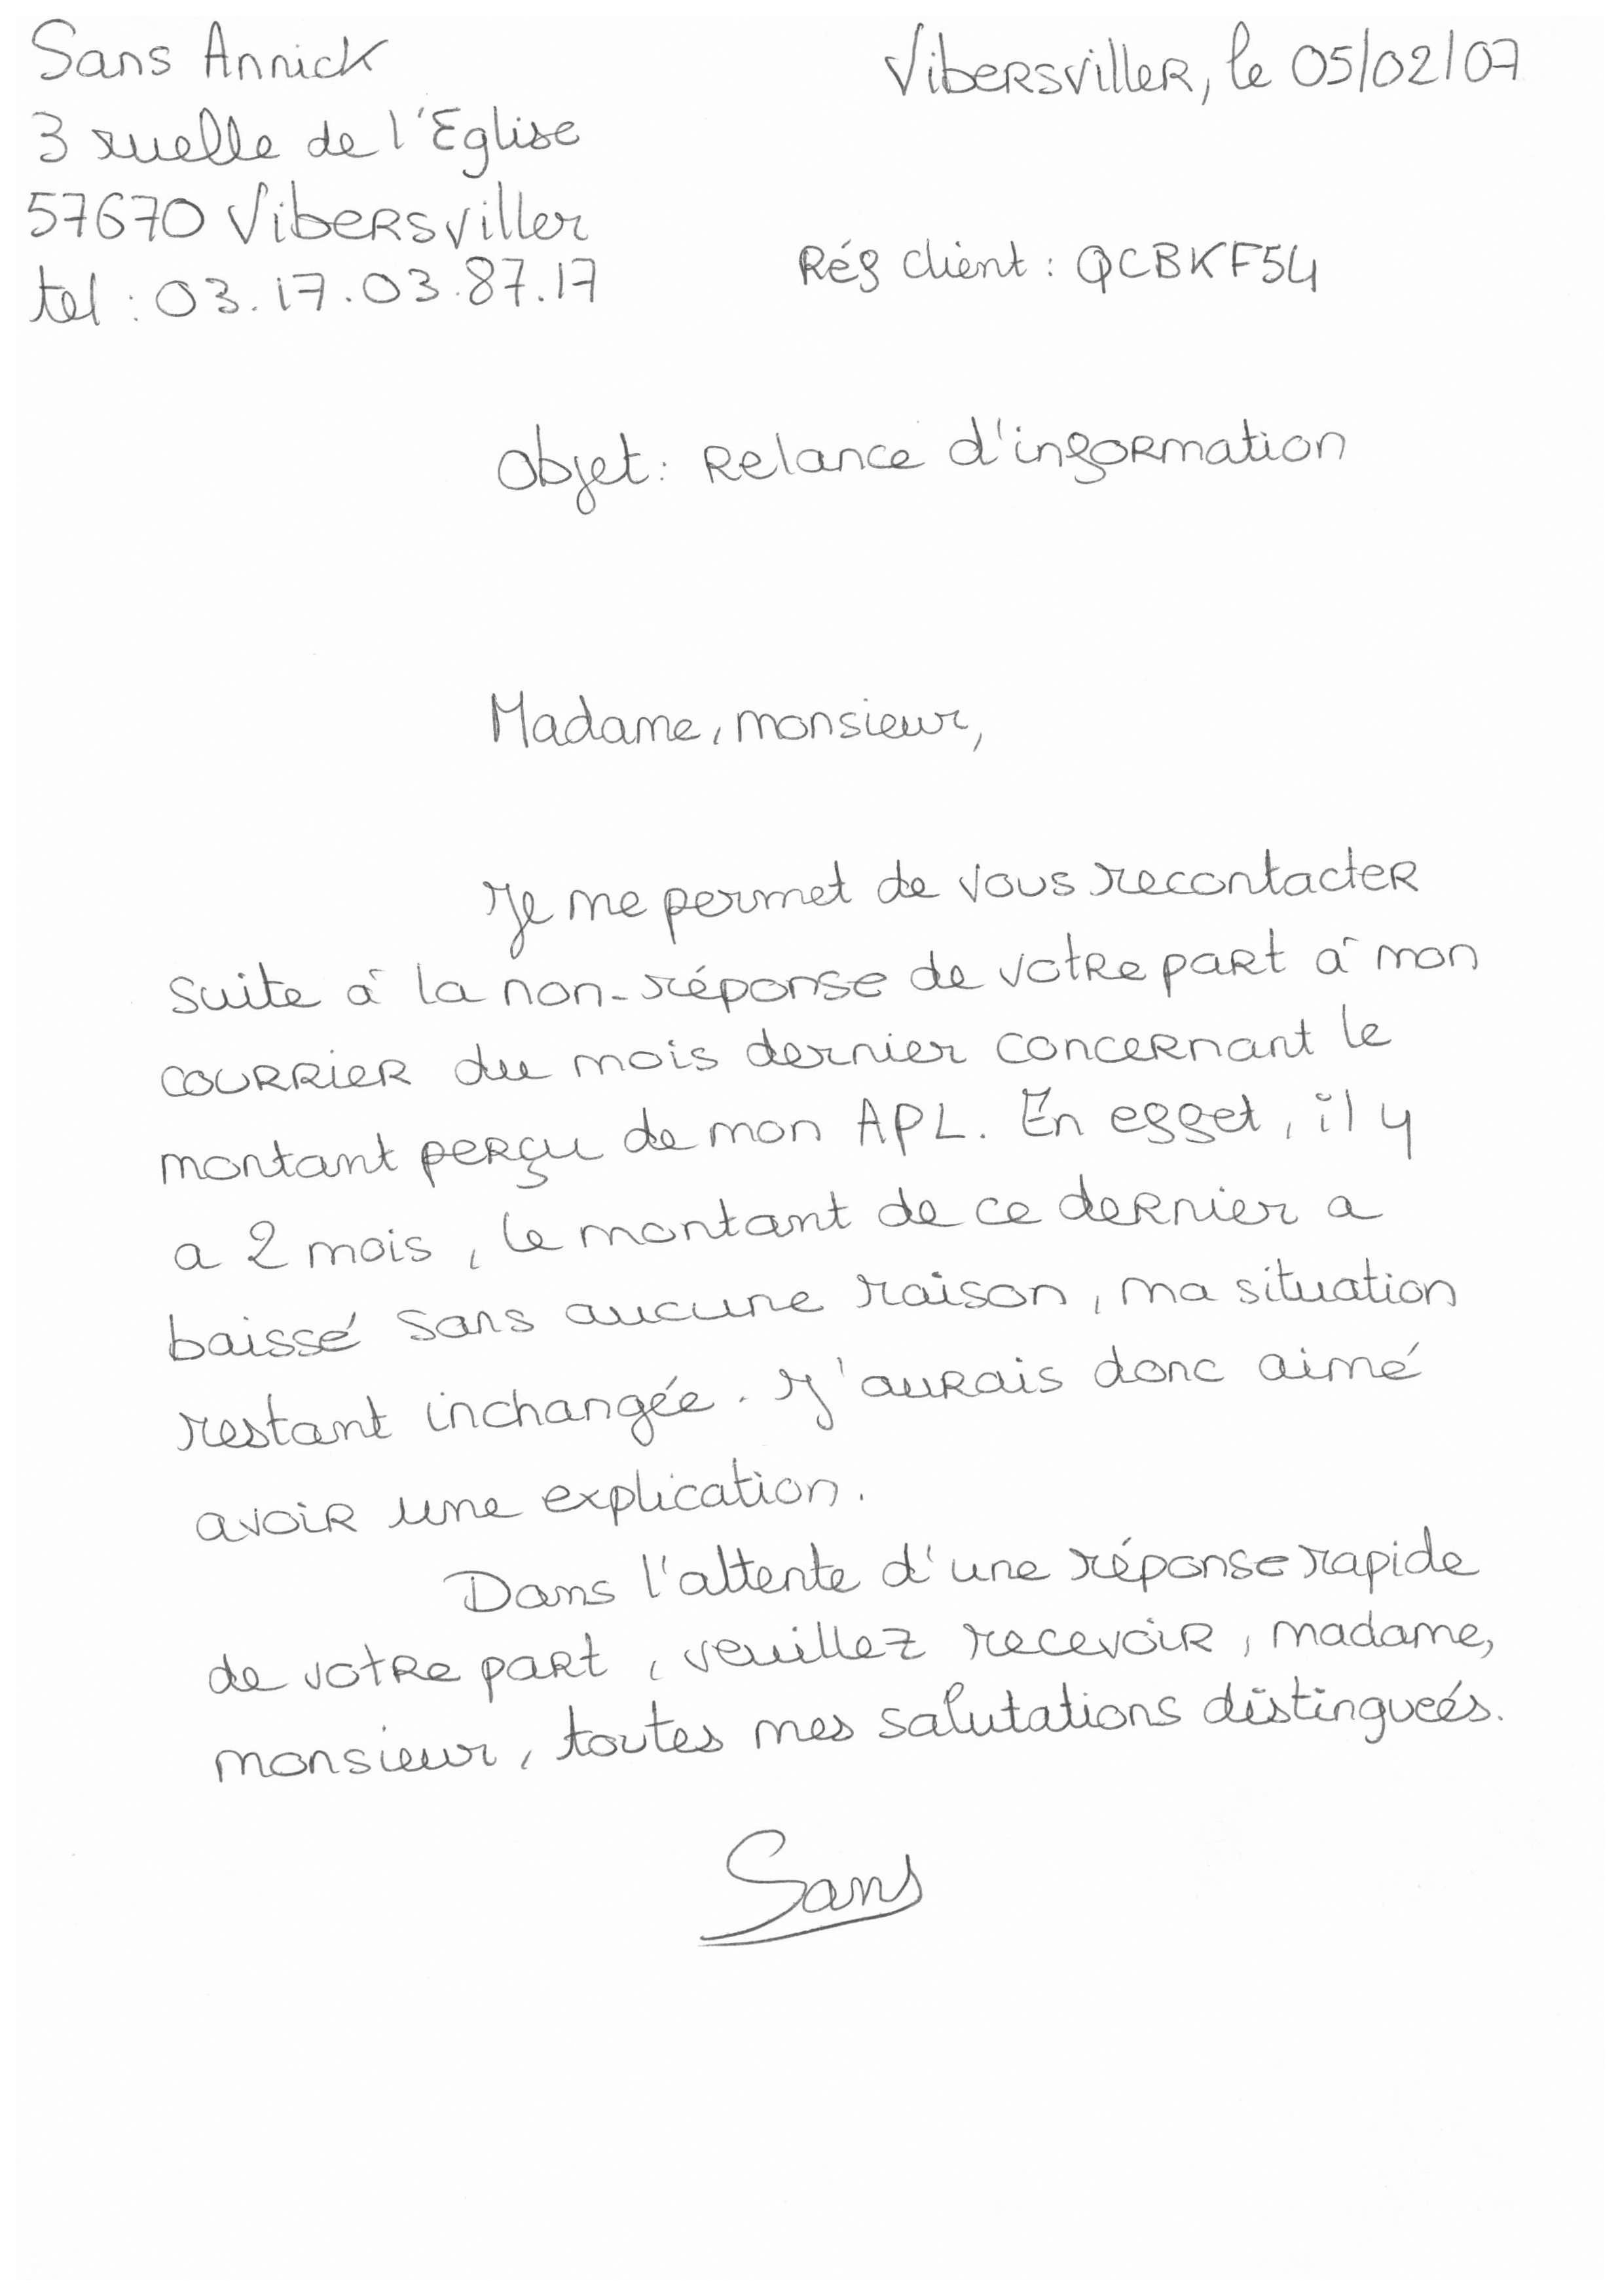 Sans Annick
3 ruelle de l'Eglise
57670 Vibersviller
tel : 03.17.03.87.17
Vibersviller, le 05/02/07
Réf client : QCBKF54
Objet : Relance d'information
Madame, monsieur,
Je me permet de vous recontacter
suite à la non-réponse de votre part à mon
courrier du mois dernier concernant le
montant perçu de mon APL. En effet, il y
a 2 mois, le montant de ce dernier a
baissé sans aucune raison, ma situation
restant inchangée. J'aurais donc aimé
avoir une explication.
Dans l'attente d'une réponse rapide
de votre part, veuillez recevoir, madame,
monsieur, toutes mes salutations distinguées.
Sans